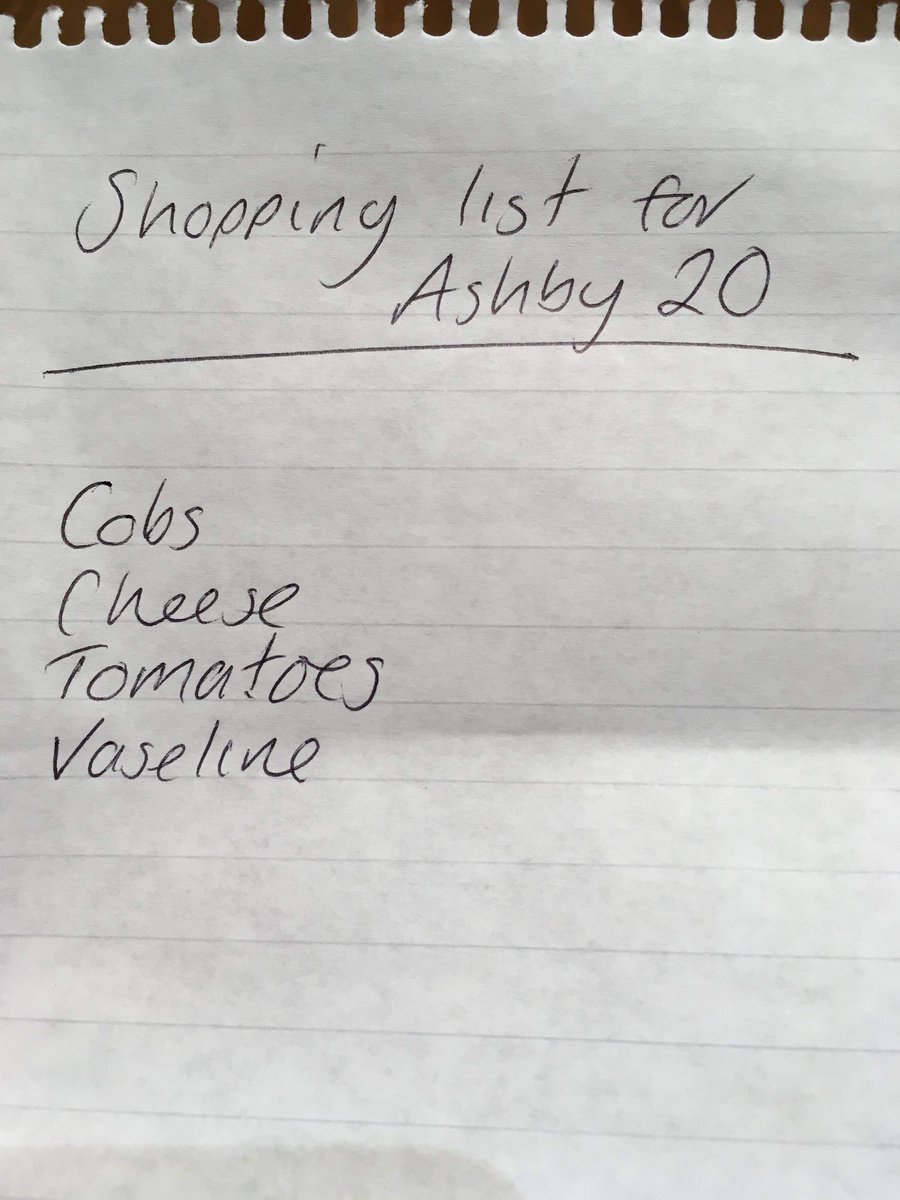 Shopping list for
Ashby 20
Cobs
Cheese
Tomatoes
Vaseline